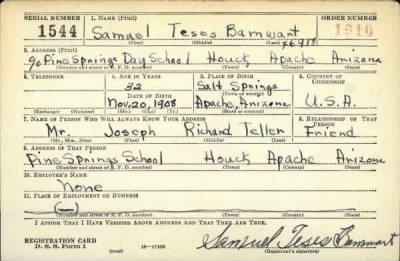 SERIAL NUMBER 1. NAME (Print) ORDER NUMBER
1544 Samuel Teses Barnwart 1910
(First) (Middle) (Last)
2. ADDRESS (Print)
90 Pine Springs Day School Houck Apache Arizona
(Number and street or R. F. D. number) (Town) (County) (State)
3. TELEPHONE 4. AGE IN YEARS 5. PLACE OF BIRTH 6. COUNTRY OF CITIZENSHIP
32 Salt Springs
DATE OF BIRTH (Town or county)
Nov. 20, 1908 Apache, Arizona U.S.A.
(Exchange) (Number) (Mo.) (Day) (Yr.) (State or country)
7. NAME OF PERSON WHO WILL ALWAYS KNOW YOUR ADDRESS 8. RELATIONSHIP OF THAT PERSON
Mr. Joseph Richard Teller Friend
(Mr., Mrs., Miss) (First) (Middle) (Last)
9. ADDRESS OF THAT PERSON
Pine Springs School Houck Apache Arizona
(Number and street or R. F. D. number) (Town) (County) (State)
10. EMPLOYER'S NAME
None
11. PLACE OF EMPLOYMENT OR BUSINESS
(—)
(Number and street or R. F. D. number) (Town) (County) (State)
I AFFIRM THAT I HAVE VERIFIED ABOVE ANSWERS AND THAT THEY ARE TRUE.
REGISTRATION CARD
D. S. S. Form 1 (over) Samuel Teses
(Registrant's signature)